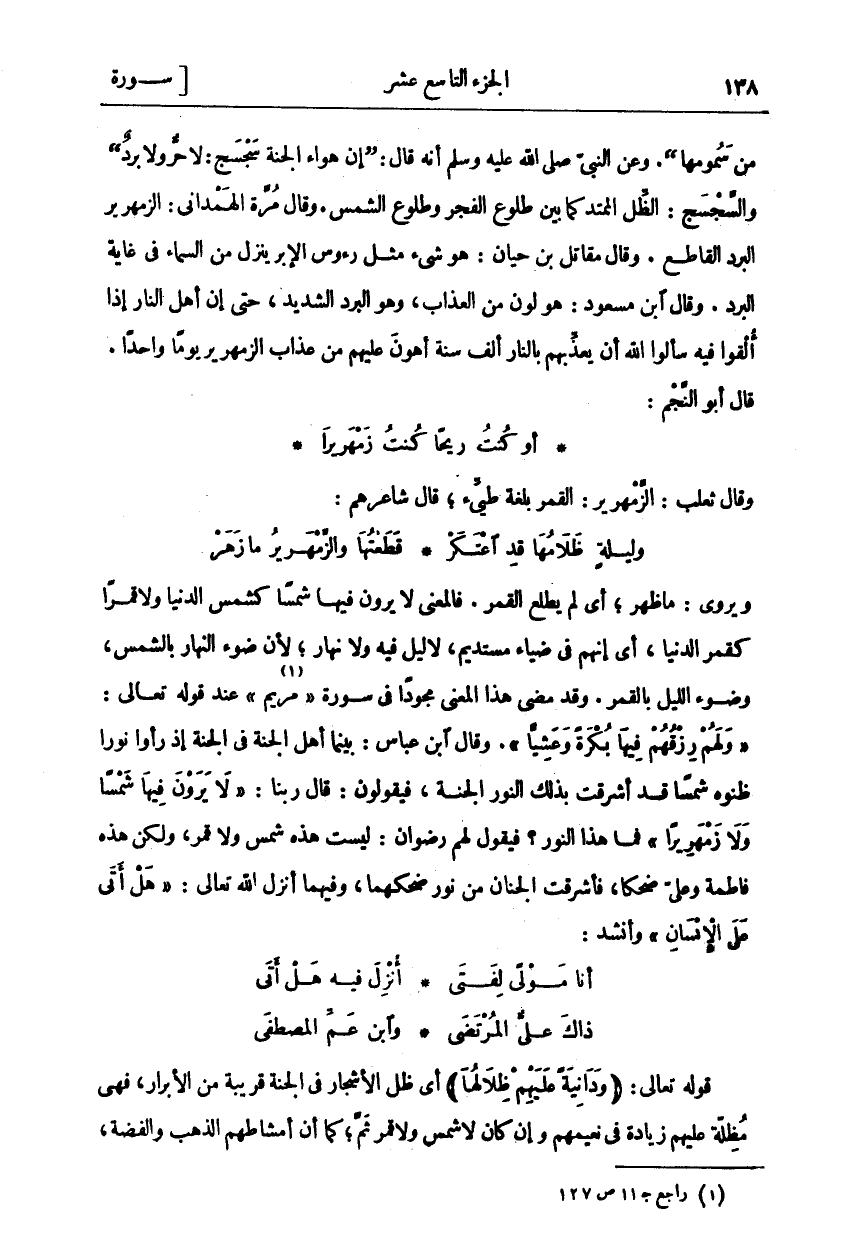 ١٣٨ الجزء التاسع عشر [ ســورة
من سَمُومها“. وعن النبىّ صلى الله عليه وسلم أنه قال: ”إن هواء الجنة سَجْسَج: لا حرٌّ ولا بردٌ“
والسَّجْسَج : الظِّل الممتد كما بين طلوع الفجر وطلوع الشمس. وقال مُرَّة الهَمْدانى: الزمهرير
البرد القاطع . وقال مقاتل بن حيان : هو شىء مثــل رءوس الإبر ينزل من السماء فى غاية
البرد . وقال آبن مسعود : هو لون من العذاب، وهو البرد الشديد ، حتى إن أهل النار إذا
أُلقوا فيه سألوا الله أن يعذِّبهم بالنار ألف سنة أهونَ عليهم من عذاب الزمهرير يومًا واحدًا .
قال أبو النَّجْم :
* أو كُنتُ ريحًا كُنتُ زَمْهَرِيرَا *
وقال ثعلب : الزَّمْهرير : القمر بلغة طيِّء ؛ قال شاعرهم :
وليــلةٍ ظَلَامُهَا قدِ آعْتَــكَرْ * قَطَعْتُهَا والزَّمْهَــرِيرُ ما زَهَرْ
ويروى : ماظهر ؛ أى لم يطلع القمر . فالمعنى لا يرون فيهــا شمسًا كشمس الدنيا ولاقمــرًا
كقمر الدنيا ، أى إنهم فى ضياء مستديم، لاليل فيه ولا نهار ؛ لأن ضوء النهار بالشمس،
وضــوء الليل بالقمر . وقد مضى هذا المعنى مجودًا فى ســورة « مريم (١) » عند قوله تعــالى :
« وَلَهُمْ رِزْقُهُمْ فِيهَا بُكْرَةً وَعَشِيًّا ». وقال آبن عباس : بينما أهل الجنة فى الجنة إذ رأوا نورا
ظنوه شمسًا قــد أشرقت بذلك النور الجنــة ، فيقولون : قال ربنا : « لَا يَرَوْنَ فِيهَا شَمْسًا
وَلَا زَمْهَرِيرًا » فمــا هذا النور ؟ فيقول لهم رضوان : ليست هذه شمس ولا قمر، ولكن هذه
فاطمة وعلىّ ضحكا، فأشرقت الجنان من نور ضحكهما، وفيهما أنزل الله تعالى : « هَلْ أَتَى
عَلَى الْإِنْسَانِ » وأنشد :
أنا مَــوْلًى لِفَــتَى * أُنْزِلَ فيــه هَــلْ أَتَى
ذاكَ علــىٌّ المُرْتَضَى * وآبن عَــمِّ المصطفَى
قوله تعالى : ﴿ وَدَانِيَةً عَلَيْهِمْ ظِلَالُهَا ﴾ أى ظل الأشجار فى الجنة قريبة من الأبرار، فهى
مُظِلّة عليهم زيادة فى نعيمهم و إن كان لاشمس ولاقمر ثَمَّ؛ كما أن أمشاطهم الذهب والفضة،
(١) راجع جـ ١١ ص ١٢٧